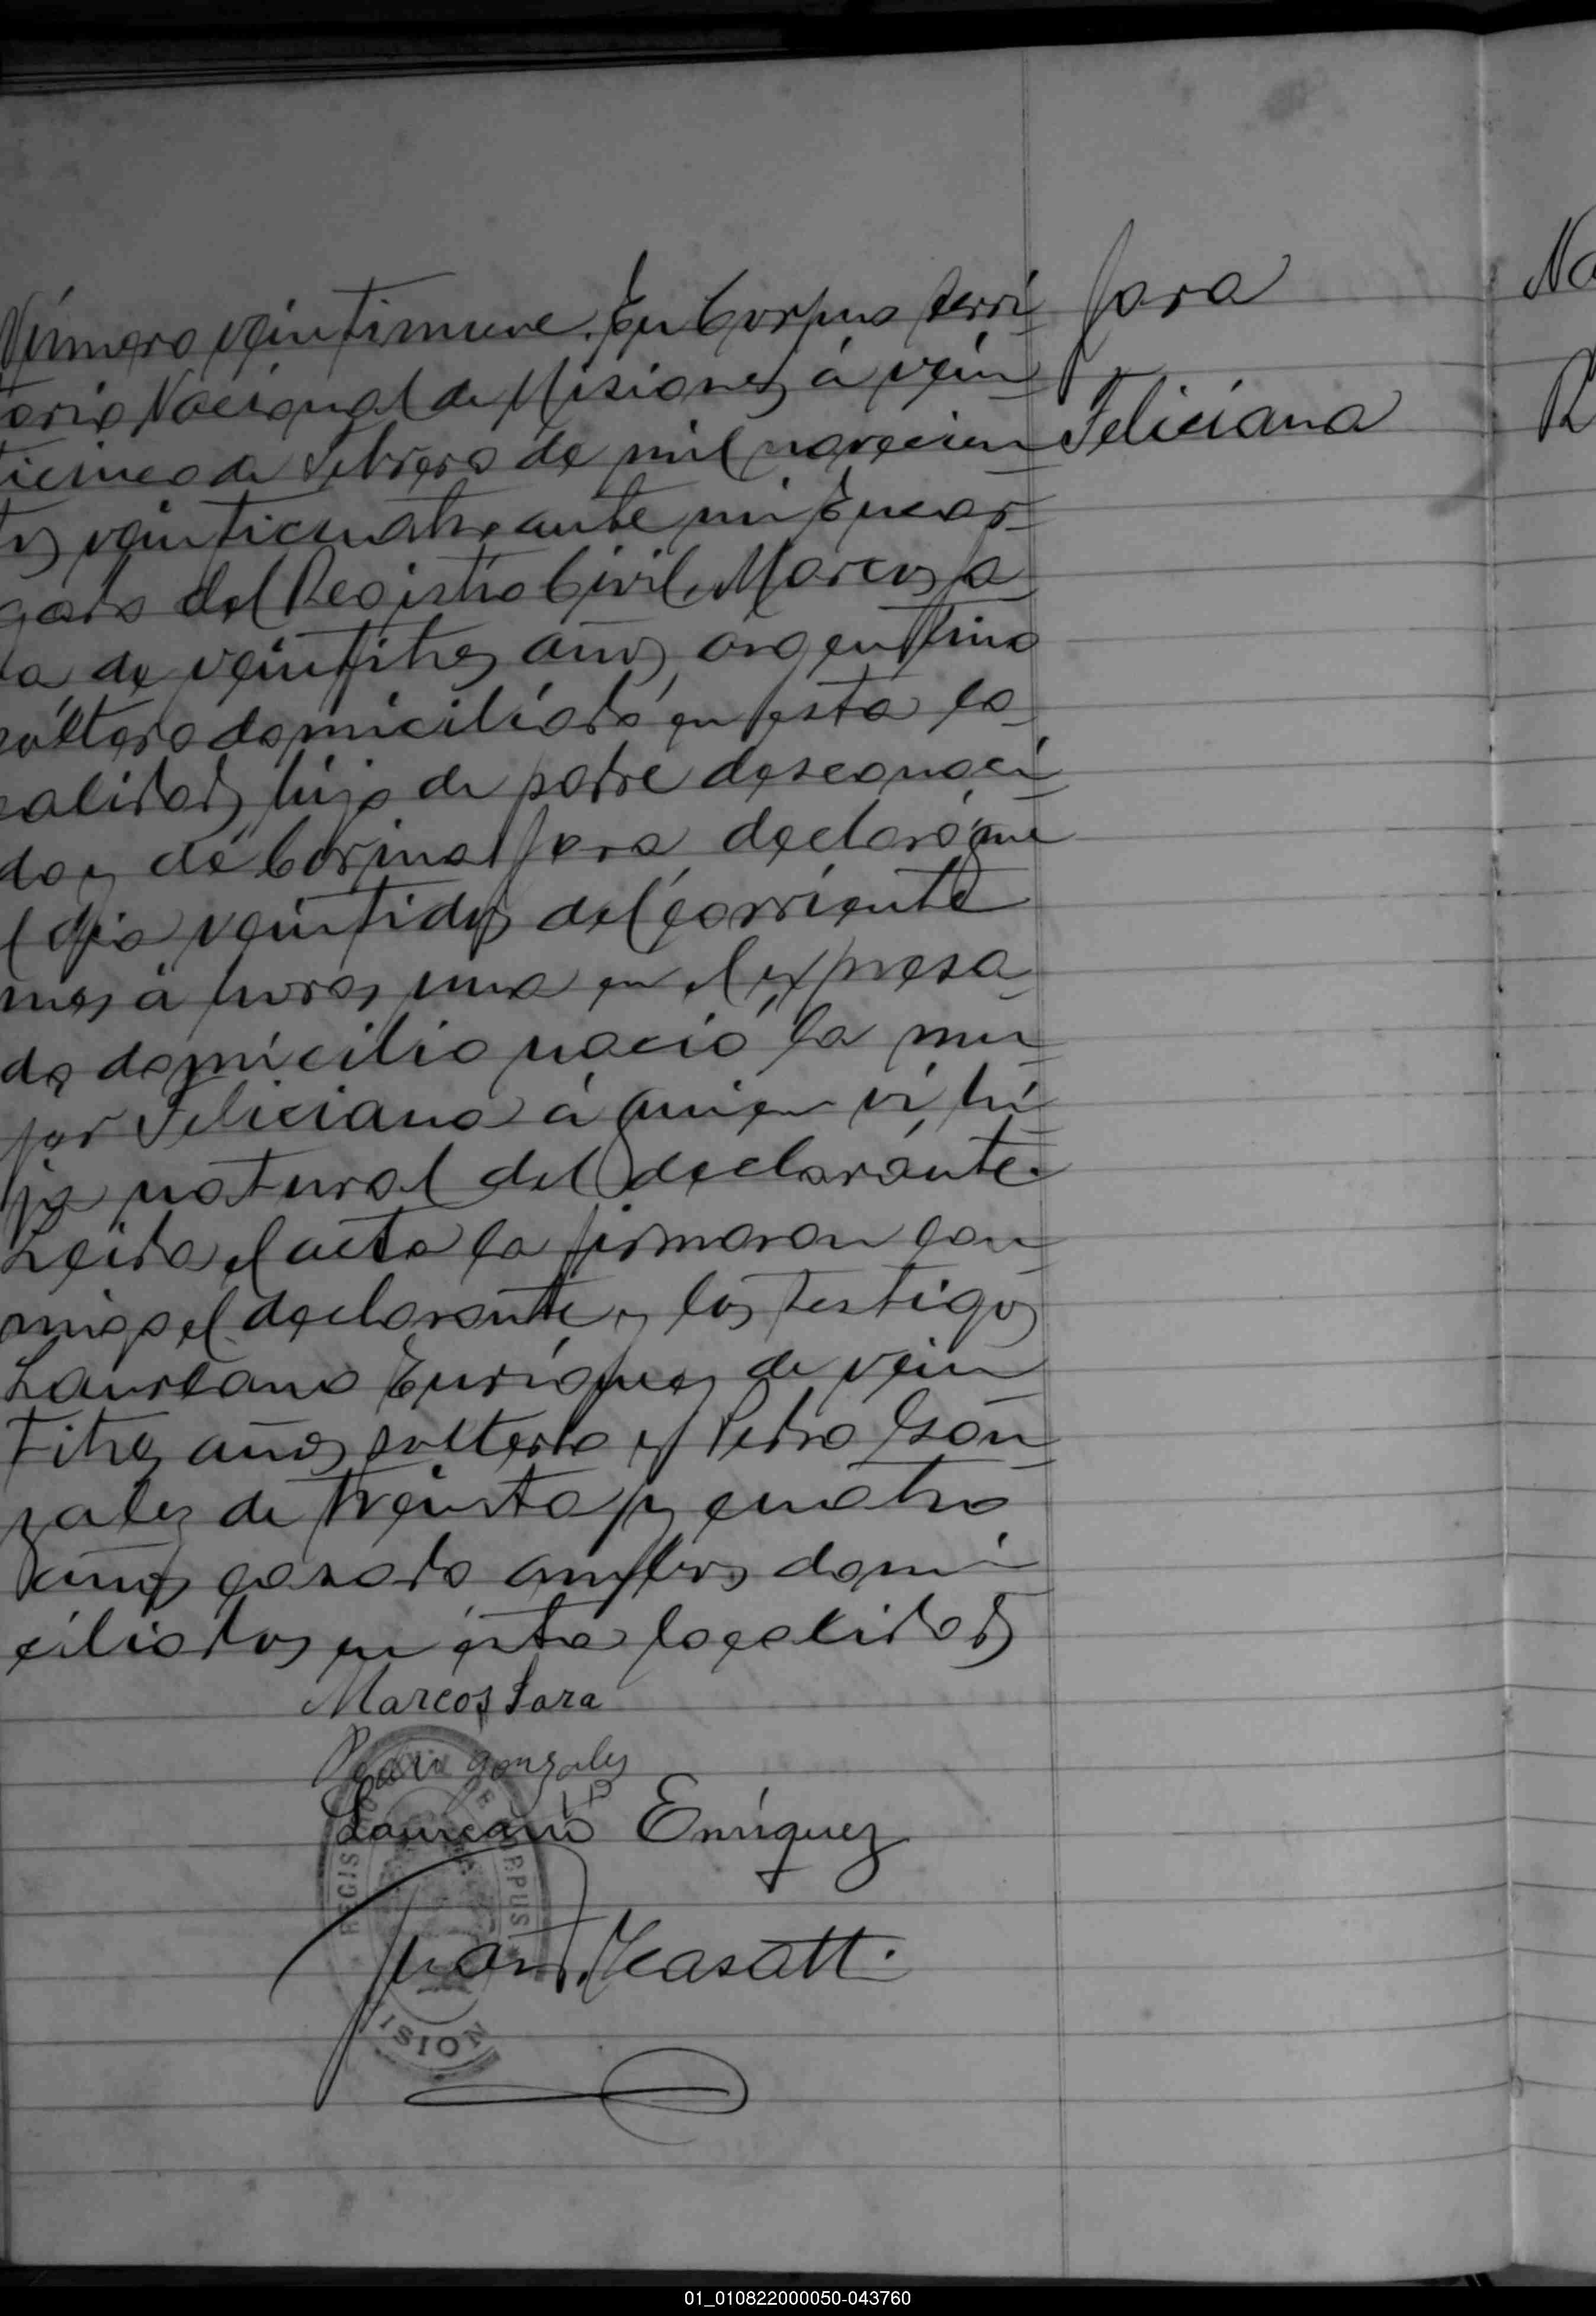 Número veintinueve. En Corpus terri
torio Nacional de Misiones, á vein
ticinco de Febrero de mil novecien
tos veinticuatro ante mi Encar
gado del Registro Civil, Marcos Ja
ra de veintitres años, argentino
soltero domiciliado en esta lo
calidad, hijo de padre desconoci
do y de Corina Jara declaróme
el dia veintidos del corriente
mes á horas una en el expresa
do domicilio nació la mu
jer Feliciana á quien ví, hi
ja natural del declarante.
Leida el acta la firmaron con
migo el declarante y los testigos
Laureano Enriquez de vein
titres años soltero y Pedro Gon
zalez de treinta y cuatro
años casado ambos domi
ciliados en ésta localidad
Jara
Feliciana
Marcos Jara
Pedro gonzales
Laureano Enriquez
Juan
REGIS
CORPUS
ISION
No
R
01_010822000050-043760